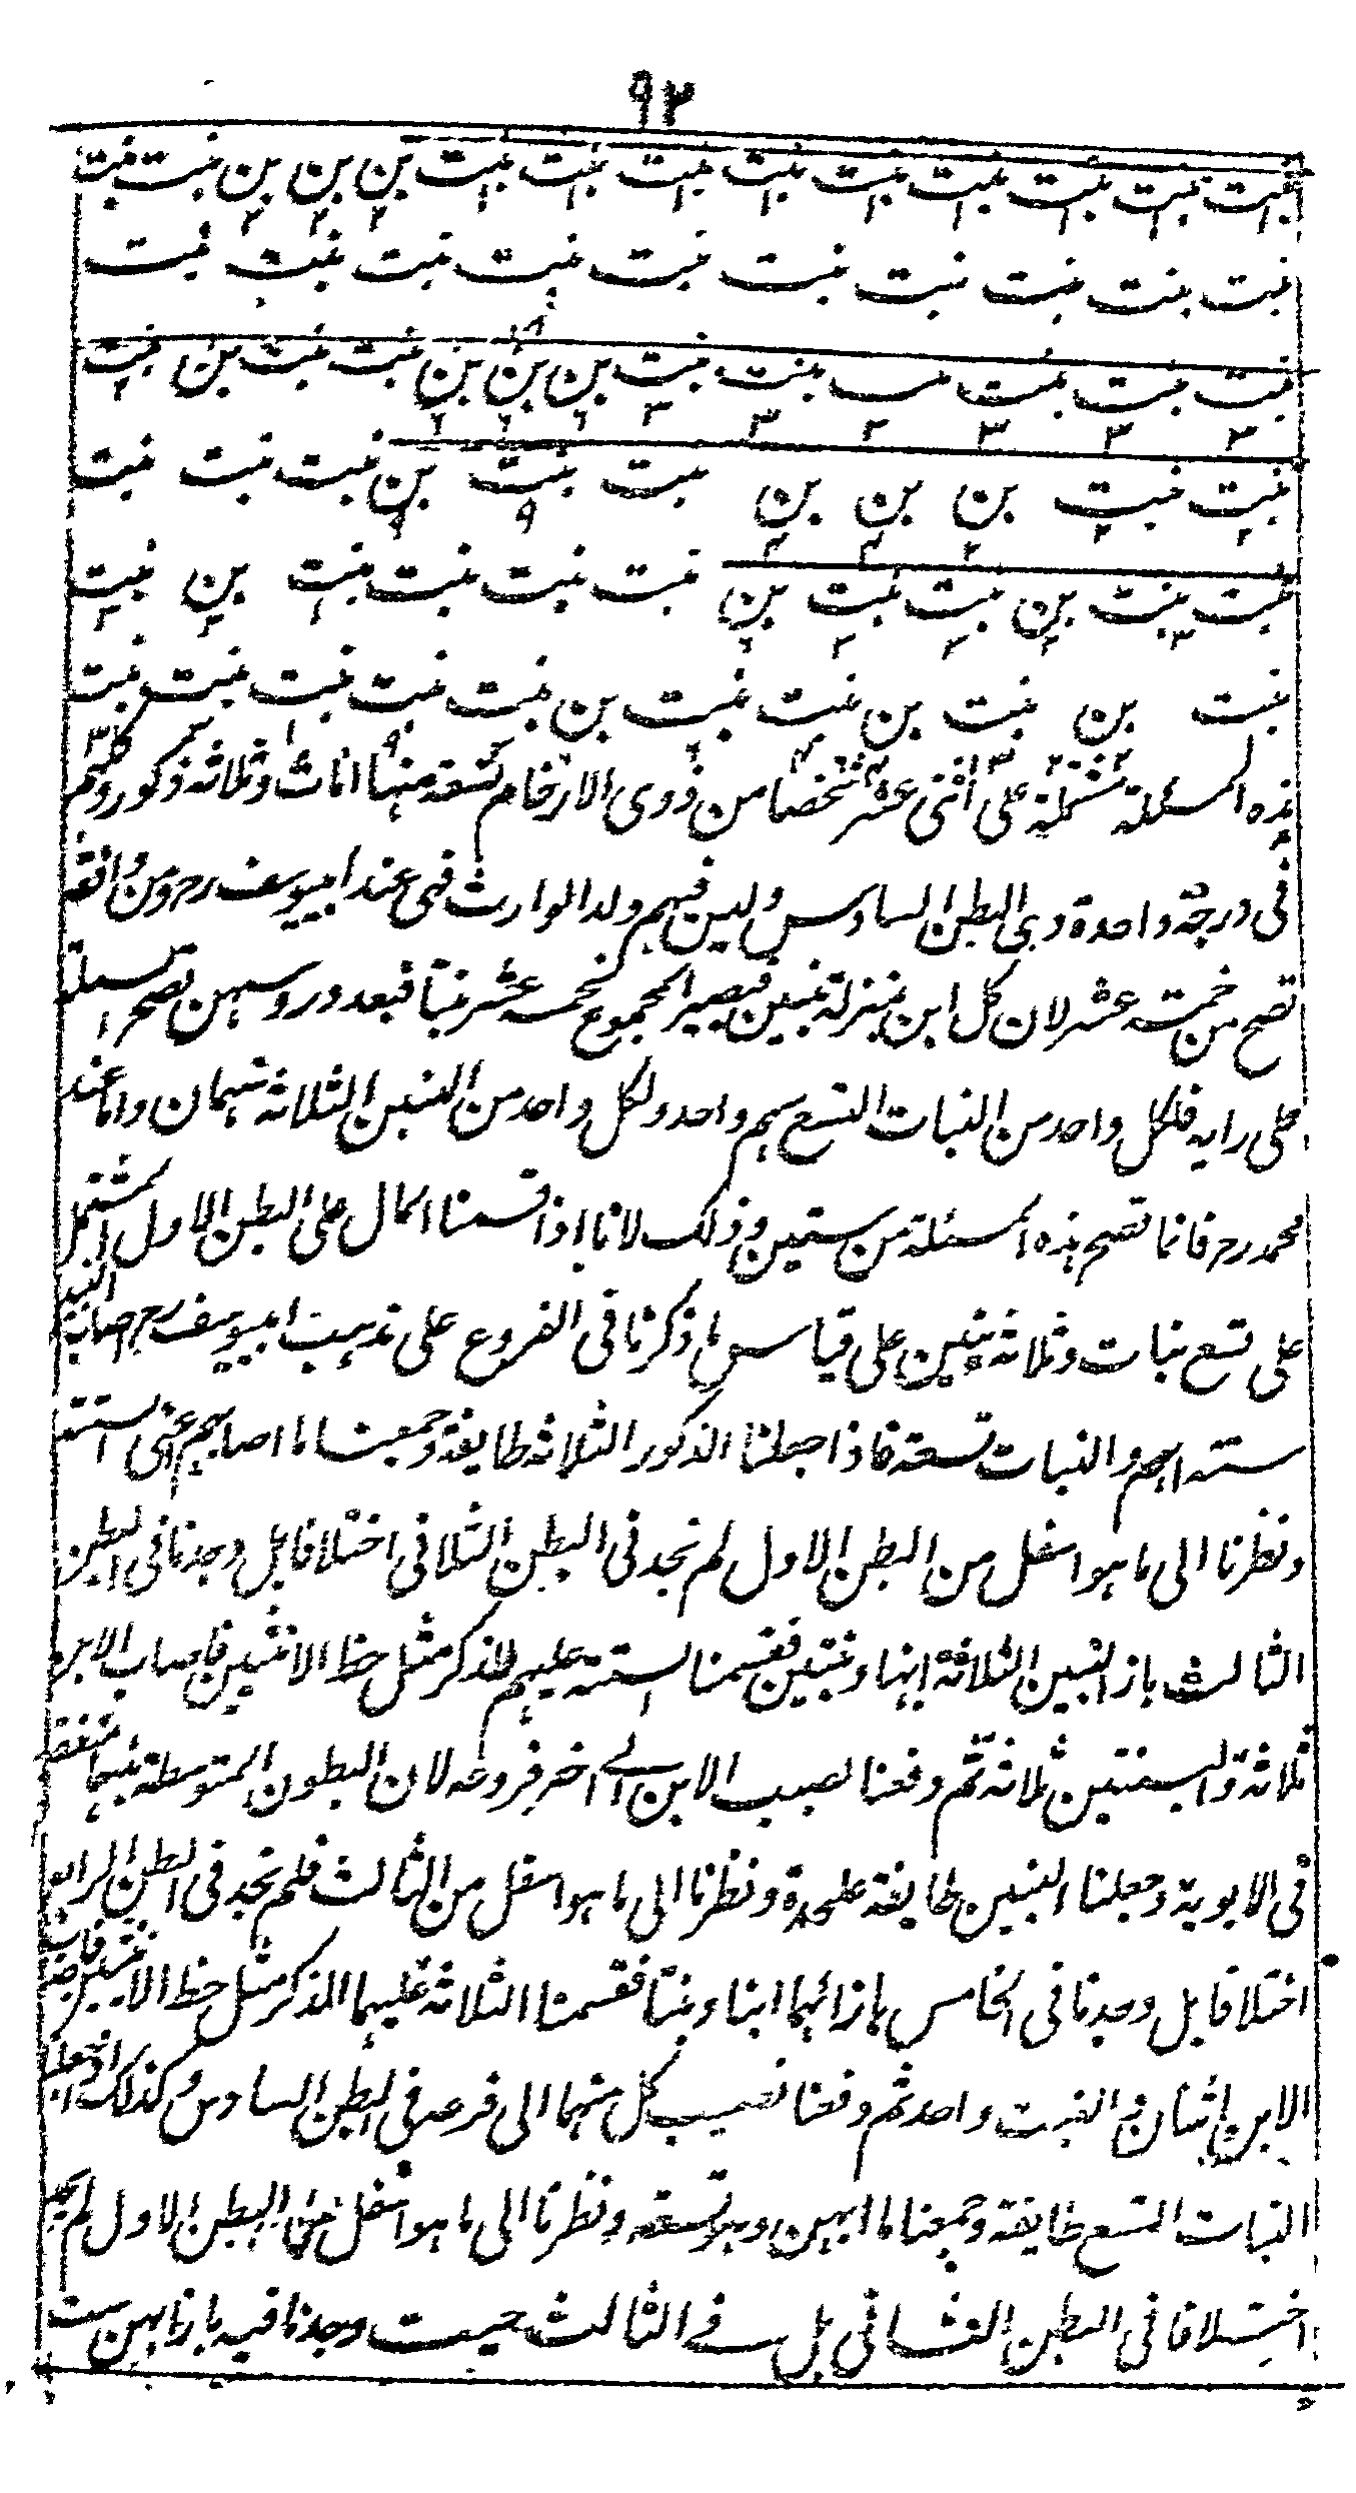 ٩٣
بنت بنت بنت بنت بنت بنت بنت بنت بنت بن بن بن بنت بنت
١ ١ ١ ١ ١ ١ ١ ١ ١ ٢ ٢ ٢
بنت بنت بنت بنت بنت بنت بنت بنت بنت بنت
بنت بنت بنت بنت بنت بنت بن بن بن بنت بنت بن بنت
٣ ٣ ٣ ٣ ٣ ٣ ٦ ٦ ٦ ٢
بنت بنت بن بن بن بنت بنت بن بنت بنت بنت
بنت بنت بن بنت بنت بن بنت بنت بنت بنت بن بنت
بنت بن بنت بن بنت بنت بن بنت بنت بنت بنت بنت
هذه المسئلة مشتملة على اثنى عشر شخصا من ذوى الارحام تسعة منها اناث وثلاثه ذكور وكلهم
فى درجة واحدة وهى البطن السادس وليس فيهم ولد الوارث فهى عند ابيوسف رحـ ومن وافقه
تصح من خمسة عشر لان كل ابن بمنزلة بنتين فيصير المجموع خمسة عشر بنتا فبعدد روسهن تصح المسئلة
على رايه فلكل واحد من البنات التسع سهم واحد ولكل واحد من البنين الثلاثه سهمان واما عند
محمد رحـ فانما تصح هذه المسئلة من ستين وذلك لانا اذا قسمنا المال على البطن الاول المشتمل
على تسع بنات وثلاثة بنين على قياس ما ذكرنا فى الفروع على مذهب ابيوسف رحـ اصاب البنين
ستة اسهم والبنات تسعة فاذا جعلنا الذكور الثلاثه طايفة وجمعنا ما اصابهم اعنى الستة
ونظرنا الى ما هو اسفل من البطن الاول لم نجد فى البطن الثانى اختلافا بل وجدنا فى البطن
الثالث بازاء البنين الثلاثة ابنا وبنتين فقسمنا الستة عليهم للذكر مثل حظ الانثيين فاصاب الابن
ثلاثة والبنتين ثلاثه ثم دفعنا نصيب الابن الى اخر فروعه لان البطون المتوسطة بينهما متفقة
فى الابوية وجعلنا البنتين طايفة علىحدة ونظرنا الى ما هو اسفل من الثالث فلم نجد فى البطن الرابع
اختلافا بل وجدنا فى الخامس بازائهما ابنا وبنتا فقسمنا الثلاثه عليهما للذكر مثل حظ الانثيين فاصاب
الابن اثنان والبنت واحد ثم دفعنا نصيب كل منهما الى فرعه فى البطن السادس وكذلك اذا جعلنا
البنات التسع طايفة وجمعنا ما لهن وهو تسعة ونظرنا الى ما هو اسفل من البطن الاول لم نجد
اختلافا فى البطن الثانى بل فى الثالث حيث وجدنا فيه بازائهن ست